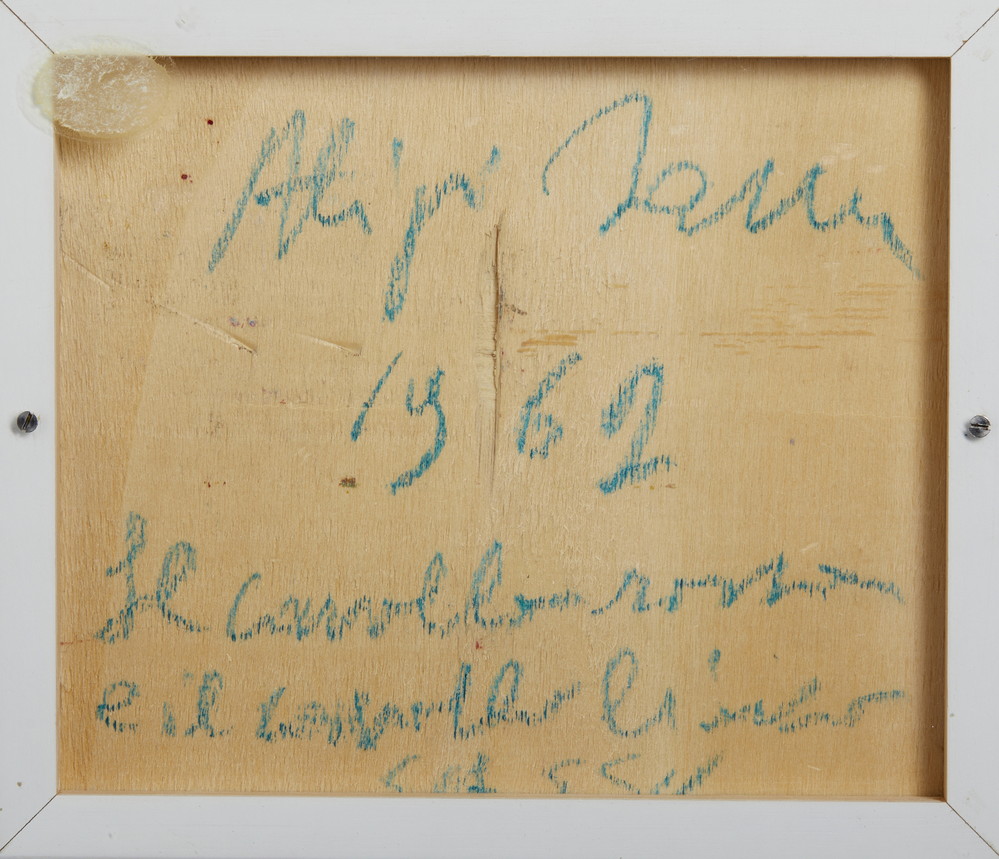 Aligi Sassu
1962
Il cavallo rosso
e il cavallo bianco